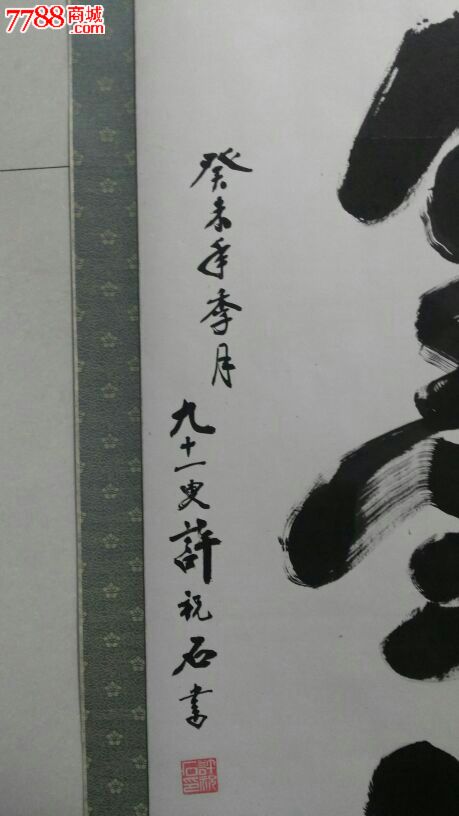 7788商城
.com
癸未年季月
九十一叟許祝石書
許祝石印